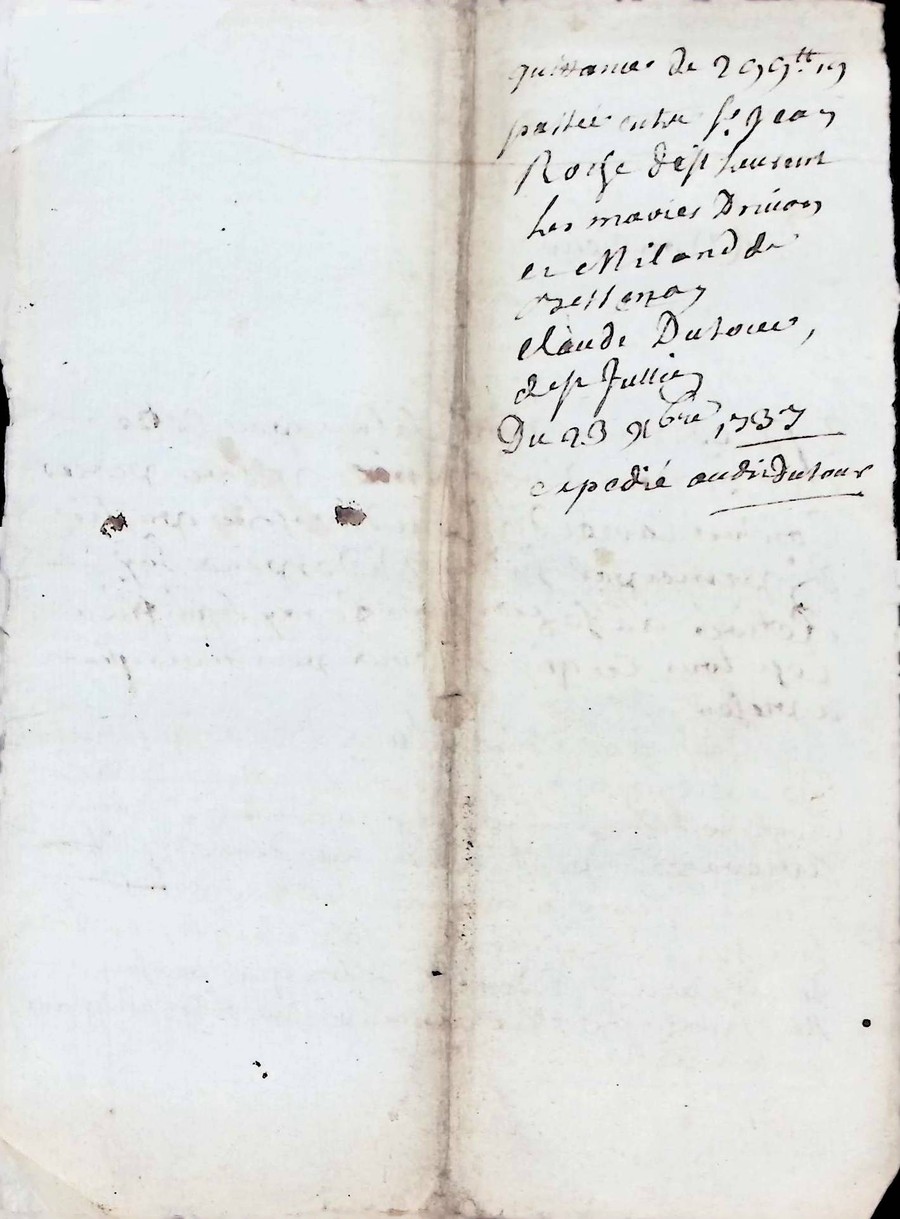 quittance de 299tt 19
passée entre Sr Jean
de St Laurent
les mariés Drivon
et Miland de
Claude Dutour,
de St Jullien
Du 23 Xbre 1737
expedié audit Dutour